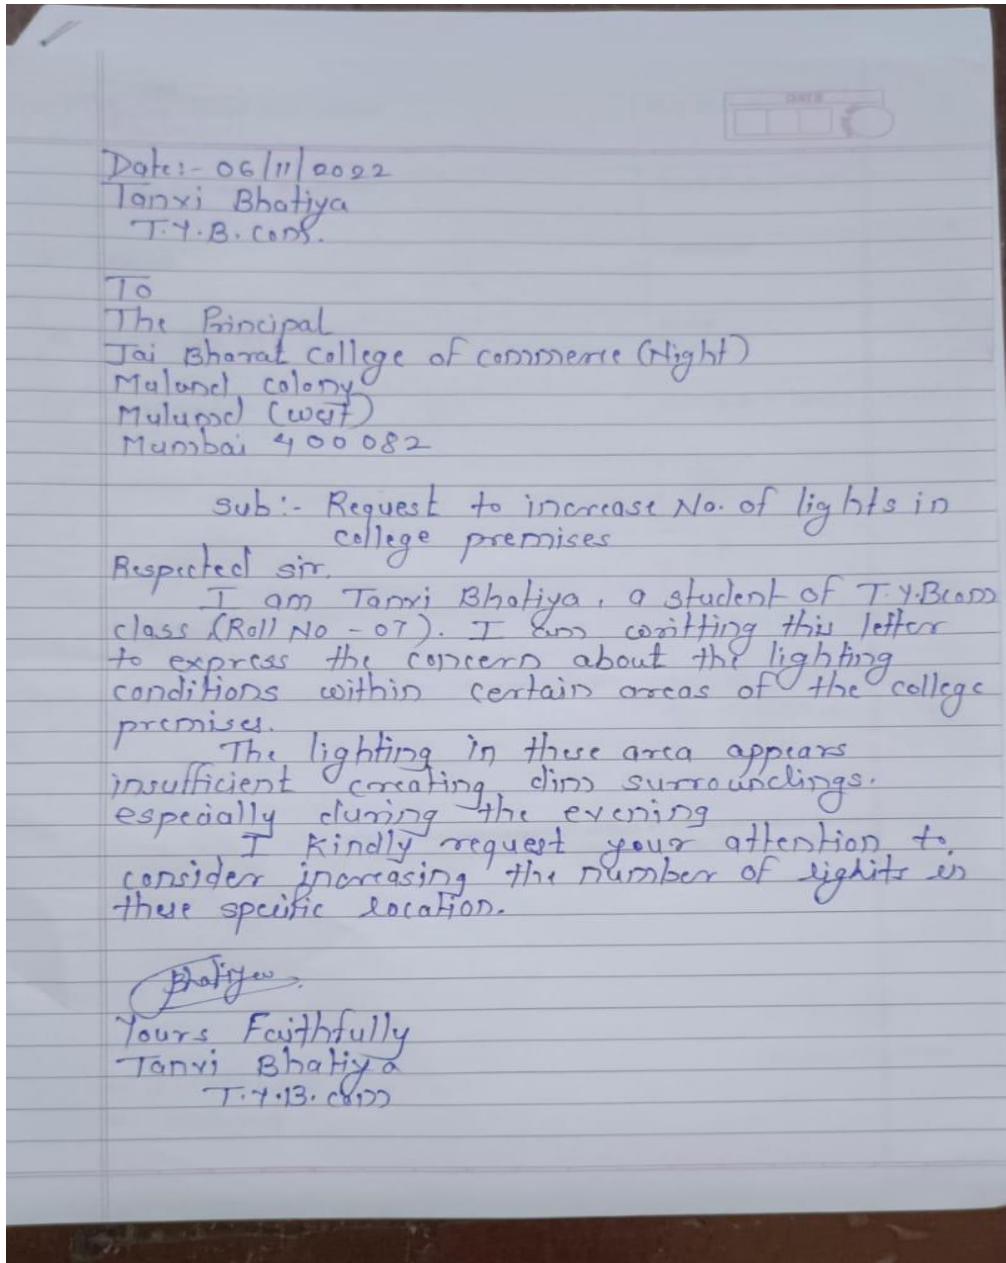 DATE
Date:- 06/11/2022
Tanvi Bhatiya
T.Y.B.com.
To
The Principal
Jai Bharat College of commerce (Night)
Mulund colony
Mulund (west)
Mumbai 400082
Sub:- Request to increase No. of lights in
college premises
Respected sir.
I am Tanvi Bhatiya, a student of T.Y.Bcom
class (Roll No - 07). I am writting this letter
to express the concern about the lighting
conditions within certain areas of the college
premises.
The lighting in these area appears
insufficient creating dim surroundings.
especially during the evening
I kindly request your attention to
consider increasing the number of lighits in
these specific location.
Bhatiya
Yours Faithfully
Tanvi Bhatiya
T.Y.B.com